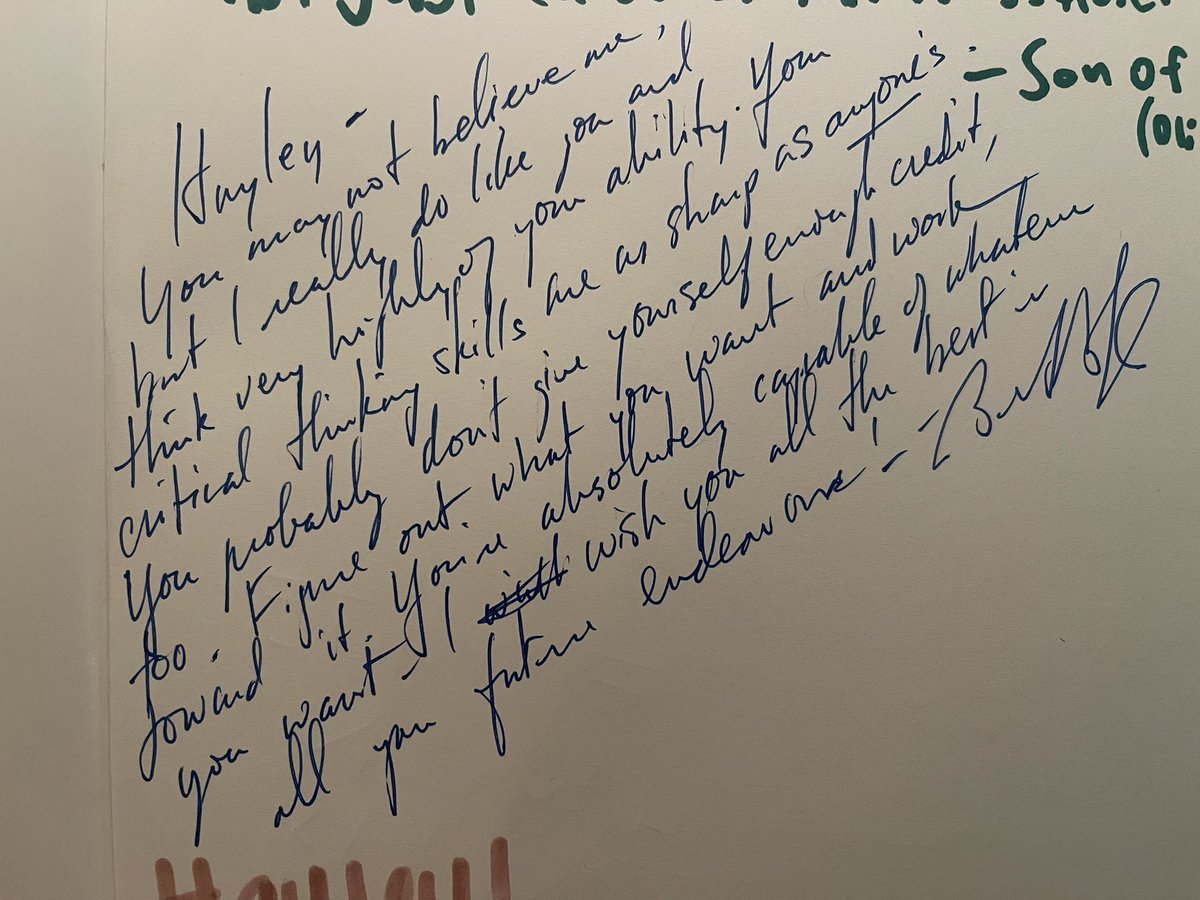 Hayley -
You may not believe me,
but I really do like you and
think very highly of your ability. Your
critical thinking skills are as sharp as anyone's.
You probably don't give yourself enough credit,
too. Figure out what you want and work
toward it. You're absolutely capable of whatever
you want - I wish you all the best in
all you future endeavors! -
- Son of
Hayley!